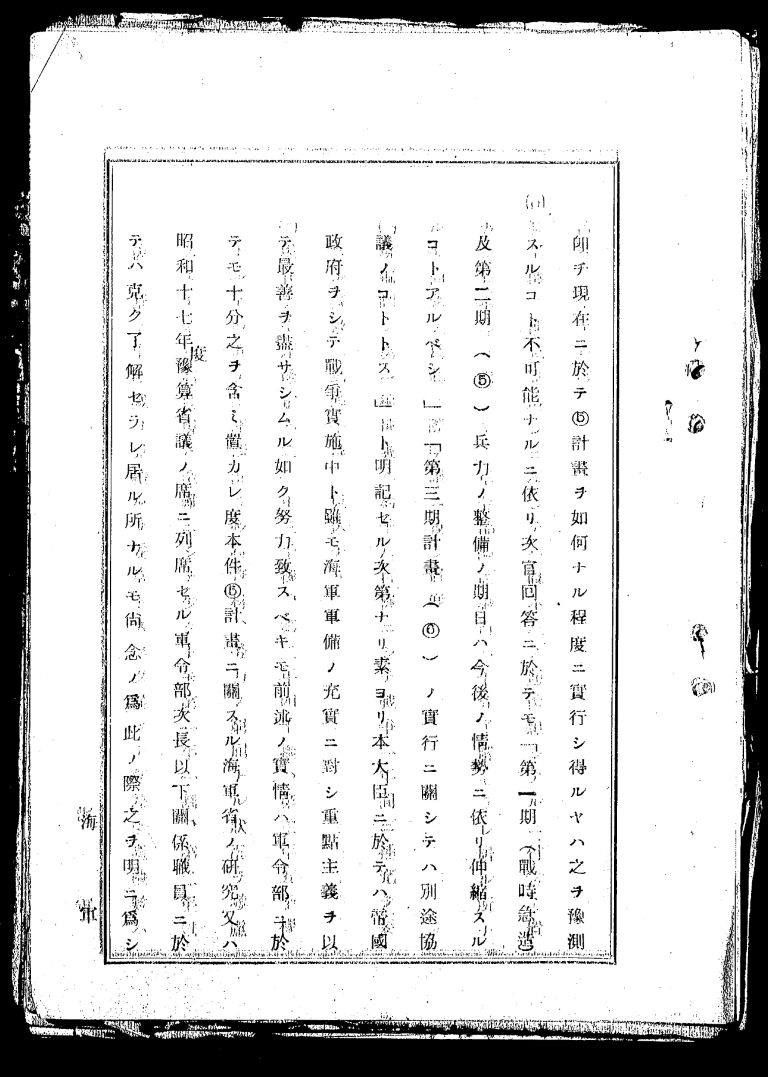 卽チ現在ニ於テ⑤計畫ヲ如何ナル程度ニ實行シ得ルヤハ之ヲ豫測
スルコト不可能ナルニ依リ次官回答ニ於テモ「第一期(戰時急造)
及第二期(⑤)兵力ノ整備ノ期日ハ今後ノ情勢ニ依リ伸縮スル
コトアルベシ」「第三期計畫(⑥)ノ實行ニ關シテハ別途協
議ノコトトス」ト明記セル次第ナリ素ヨリ本大臣ニ於テハ帝國
政府ヲシテ戰爭實施中ト雖モ海軍軍備ノ充實ニ對シ重點主義ヲ以
テ最善ヲ盡サシムル如ク努力致スベキモ前述ノ實情ハ軍令部ニ於
テモ十分之ヲ含ミ置カレ度本件⑤計畫ニ關スル海軍省ノ研究又ハ
昭和十七年度豫算省議ノ席ニ列席セル軍令部次長以下關係職員ニ於
テハ克ク了解セラレ居ル所ナルモ尙念ノ爲此ノ際之ヲ明ニ爲シ
海軍